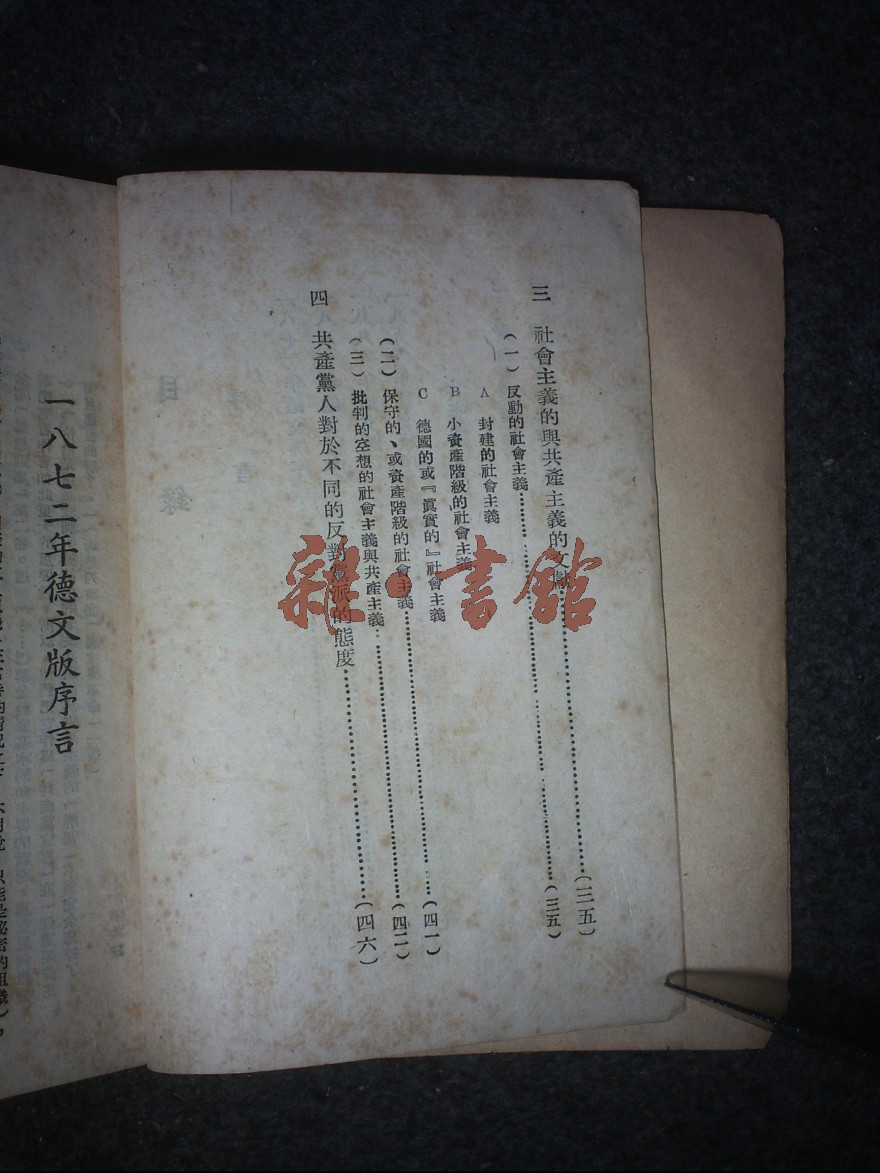 三 社會主義的與共產主義的文獻……（三五）
（一）反動的社會主義……（三五）
A 封建的社會主義
B 小資產階級的社會主義
C 德國的或『眞實的』社會主義
（二）保守的、或資產階級的社會主義……（四一）
（三）批判的空想的社會主義與共產主義……（四二）
四 共產黨人對於不同的反對黨派的態度……（四六）
一八七二年德文版序言
雜·書館